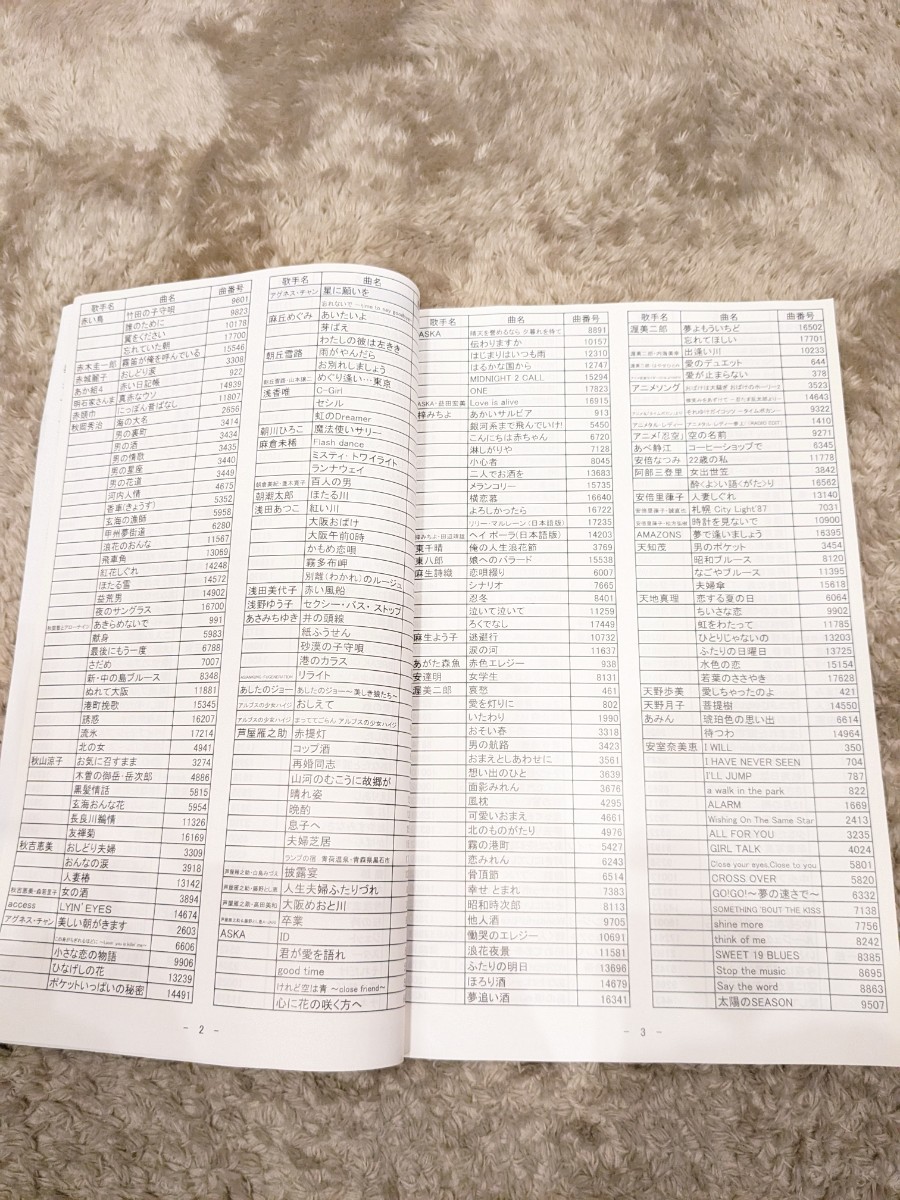 歌手名 曲名 曲番号
赤い鳥 竹田の子守唄 9601
誰のために 9823
翼をください 10178
忘れていた朝 17700
赤木圭一郎 霧笛が俺を呼んでいる 15546
赤城麗子 おしどり涙 3308
あか組4 赤い日記帳 922
明石家さんま 真赤なウソ 14939
赤頭巾 にっぽん昔ばなし 11807
秋岡秀治 海の大名 2655
男の裏町 3414
男の酒 3434
男の情歌 3435
男の星座 3440
男の花道 3449
河内人情 4675
香車(きょうす) 5352
玄海の漁師 5958
甲州夢街道 6280
浪花のおんな 11567
飛車角 13069
紅花しぐれ 14248
ほたる雪 14572
益荒男 14902
夜のサングラス 16700
あきらめないで 991
献身 5983
最後にもう一度 6788
さだめ 7007
新・中の島ブルース 8348
ぬれて大阪 11881
港町挽歌 15345
誘惑 16207
流氷 17214
北の女 4941
秋山涼子 お気に召すまま 3274
木曽の御岳・岳次郎 4886
黒髪情話 5815
玄海おんな花 5954
長良川鵜情 11326
友禅菊 16169
秋吉恵美 おしどり夫婦 3309
おんなの涙 3918
人妻椿 13142
女の酒 3894
access LYIN' EYES 14674
アグネス・チャン 美しい朝がきます 2603
6606
小さな恋の物語 9906
ひなげしの花 13239
ポケットいっぱいの秘密 14491
- 2 -
歌手名 曲名
アグネス・チャン 星に願いを
麻丘めぐみ あいたいよ
芽ばえ
わたしの彼は左きき
朝丘雪路 雨がやんだら
お別れしましょう
朝丘雪路・山本譲二 めぐり逢い…東京
浅香唯 C-Girl
セシル
虹のDreamer
朝川ひろこ 魔法使いサリー
麻倉未稀 Flash dance
ミスティ・トワイライト
ランナウェイ
百人の男
朝潮太郎 ほたる川
浅田あつこ 紅い川
大阪おばけ
大阪午前0時
かもめ恋唄
霧多布岬
別離(わかれ)のルージュ
浅田美代子 赤い風船
浅野ゆう子 セクシー・バス・ストップ
あさみちゆき 井の頭線
紙ふうせん
砂漠の子守唄
港のカラス
リライト
あしたのジョー あしたのジョー〜美しき狼たち〜
アルプスの少女ハイジ おしえて
アルプスの少女ハイジ まっててごらん アルプスの少女ハイジ
芦屋雁之助 赤提灯
コップ酒
再婚同志
山河のむこうに故郷が
晴れ姿
晩酌
息子へ
夫婦芝居
ランプの宿 青荷温泉・青森県黒石市
披露宴
芦屋雁之助・藤野とし恵 人生夫婦ふたりづれ
芦屋雁之助・高田美和 大阪めおと川
卒業
ASKA ID
君が愛を語れ
good time
けれど空は青 〜close friend〜
心に花の咲く方へ
歌手名 曲名 曲番号
ASKA 晴天を誉めるなら夕暮れを待て 8891
伝わりますか 10157
はじまりはいつも雨 12310
はるかな国から 12747
MIDNIGHT 2 CALL 15294
ONE 17823
Love is alive 16915
梓みちよ あかいサルビア 913
銀河系まで飛んでいけ! 5450
こんにちは赤ちゃん 6720
淋しがりや 7128
小心者 8045
二人でお酒を 13683
メランコリー 15735
横恋慕 16640
よろしかったら 16722
リリー・マルレーン(日本語版) 17235
ヘイ ポーラ(日本語版) 14203
東千晴 俺の人生浪花節 3769
東八郎 娘へのバラード 15538
麻生詩織 恋唄綴り 6007
シナリオ 7665
忍冬 8401
泣いて泣いて 11259
ろくでなし 17449
麻生よう子 逃避行 10732
涙の河 11637
あがた森魚 赤色エレジー 938
安達明 女学生 8131
渥美二郎 哀愁 461
愛を灯りに 802
いたわり 1990
おそい春 3318
男の航路 3423
おまえとしあわせに 3561
想い出のひと 3639
面影みれん 3676
風枕 4295
可愛いおまえ 4661
北のものがたり 4976
霧の港町 5427
恋みれん 6243
骨頂節 6514
幸せ とまれ 7383
昭和時次郎 8113
他人酒 9705
慟哭のエレジー 10691
浪花夜景 11581
ふたりの明日 13696
ほろり酒 14679
夢追い酒 16341
- 3 -
歌手名 曲名 曲番号
渥美二郎 夢よもういちど 16502
忘れてほしい 17701
出逢い川 10233
愛のデュエット 644
愛が止まらない 378
アニメソング おばけは大騒ぎ おばけのホーリーズ 3523
14643
9322
1410
アニメ「忍空」 空の名前 9271
あべ静江 コーヒーショップで 6345
安倍なつみ 22歳の私 11778
阿部三登里 女出世笠 3842
酔(よ)い語(がた)り 16562
安倍里葎子 人妻しぐれ 13140
札幌 City Light'87 7031
時計を見ないで 10900
AMAZONS 夢で逢いましょう 16395
天知茂 男のポケット 3454
昭和ブルース 8120
なごやブルース 11395
夫婦傘 15618
天地真理 恋する夏の日 6064
ちいさな恋 9902
虹をわたって 11785
ひとりじゃないの 13203
ふたりの日曜日 13725
水色の恋 15154
若葉のささやき 17628
天野歩美 愛しちゃったのよ 421
天野月子 菩提樹 14550
あみん 琥珀色の思い出 6614
待つわ 14964
安室奈美恵 I WILL 350
I HAVE NEVER SEEN 704
I'LL JUMP 787
a walk in the park 822
ALARM 1669
Wishing On The Same Star 2413
ALL FOR YOU 3235
GIRL TALK 4024
Close your eyes,Close to you 5801
CROSS OVER 5820
GO!GO!〜夢の速さで〜 6332
SOMETHING 'BOUT THE KISS 7138
shine more 7756
think of me 8242
SWEET 19 BLUES 8385
Stop the music 8695
Say the word 8863
太陽のSEASON 9507